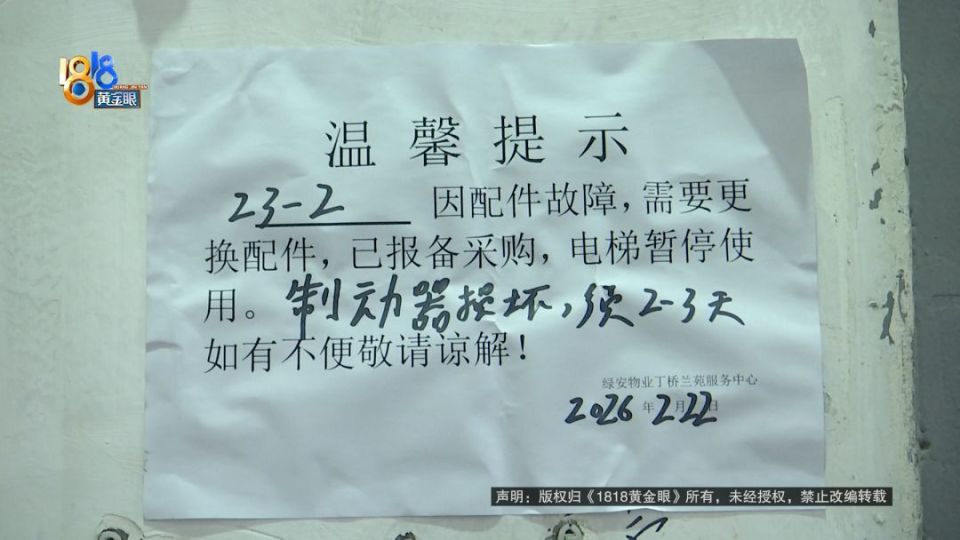 1818
黄金眼
温馨提示
23-2 因配件故障，需要更
换配件，已报备采购，电梯暂停使
用。制动器损坏，须2-3天
如有不便敬请谅解！
绿安物业丁桥兰苑服务中心
2026年2月22日
声明：版权归《1818黄金眼》所有，未经授权，禁止改编转载